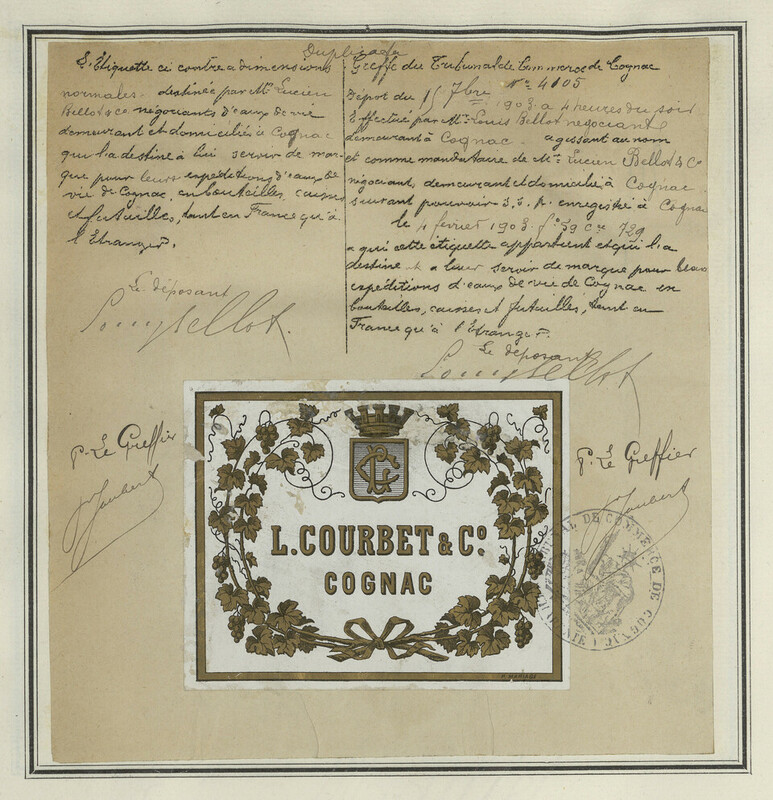 Duplicata
L'Etiquette ci contre a dimensions
normales. destinée par Mr. Lucien
Bellot & Co. négociants d'eaux de vie
demeurant et domiciliés à Cognac
qui l'a destiné à lui servir de mar-
que pour leurs expéditions d'eaux de
vie de Cognac, en bouteilles, caisses
et futailles, tant en France qu'à
l'Etranger.
Le déposant
Louis Bellot.
Greffe du Tribunal de Commerce de Cognac
No. 4105
Dépot du 15 7bre 1903 a 4 heures du soir
Effectué par Mr. Louis Bellot négociant
demeurant à Cognac. agissant au nom
et comme mandataire de Mr. Lucien Bellot & Co
négociant, demeurant et domicilié à Cognac
suivant pouvoir S.S.P. enregistré à Cognac
le 4 février 1903. fo. 59 Ce 729
a qui cette étiquette appartient et qui l'a
destiné a leur servir de marque pour leurs
expéditions d'eaux de vie de Cognac en
bouteilles, caisses et futailles, tant en
France qu'à l'Etranger.
Le déposant
Louis Bellot
P. Le Greffier
Joubert
P. Le Greffier
Joubert
L. COURBET & Co.
COGNAC
TRIBUNAL DE COMMERCE DE COGNAC